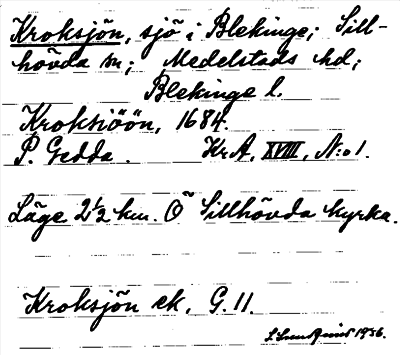 Kroksjön, sjö i Blekinge; Sill-
hövda sn; Medelstads hd;
Blekinge l.
Kroksiöön, 1684.
P. Gedda. Kr A, XVIII, N:o 1.
Läge 2½ km. Ö Sillhövda kyrka.
Kroksjön ek, G. 11.
1936.